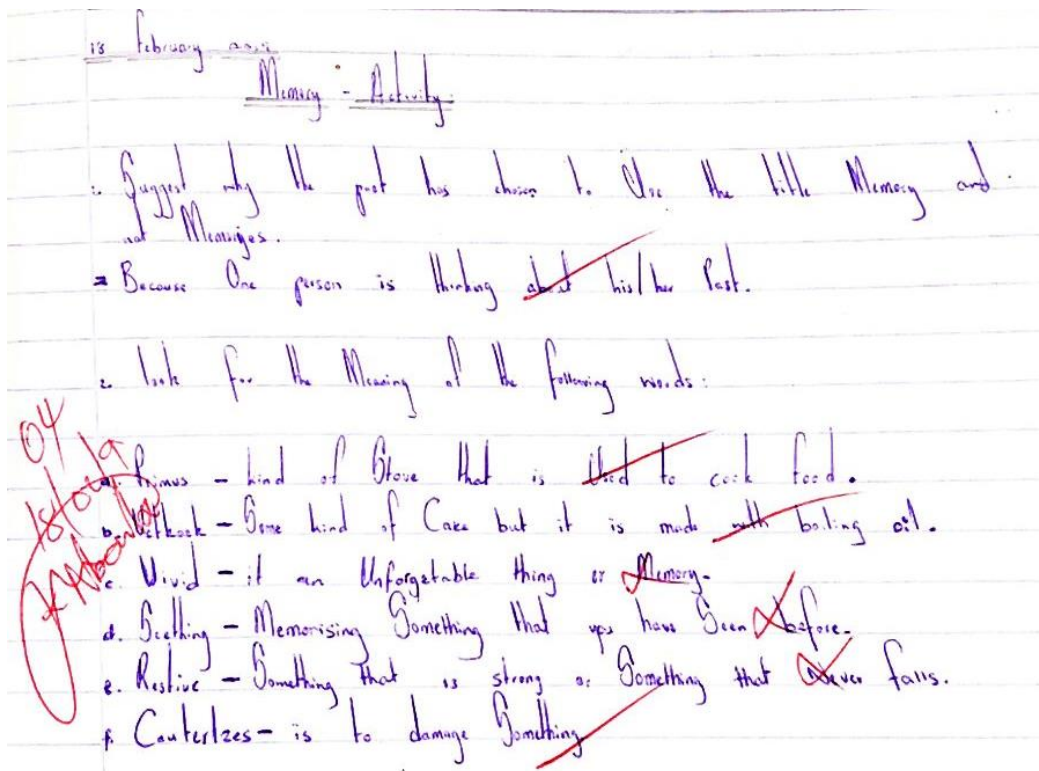 13 February
Memory - Activity.
1. Suggest why the poet has chosen to Use the title Memory and
not Memories.
= Because One person is thinking about his/her Past.
2. look for the Meaning of the following words:
04
a. Primus - kind of Stove that is Used to cook food.
b. Vetkoek - Some kind of Cake but it is made with boiling oil.
c. Vivid - it an Unforgetable thing or Memory.
d. Seething - Memorising Something that you have Seen before.
e. Restive - Something that is strong or Something that Never falls.
f. Cauterizes - is to damage Something